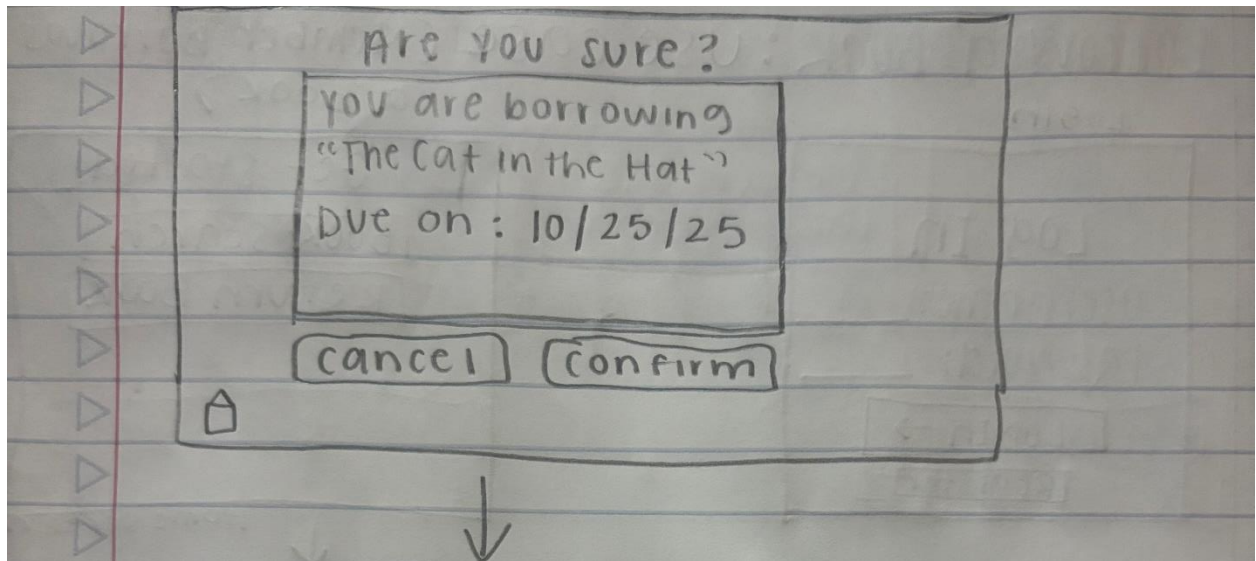 Are you sure?
you are borrowing
"The Cat in the Hat"
Due on: 10/25/25
cancel
confirm